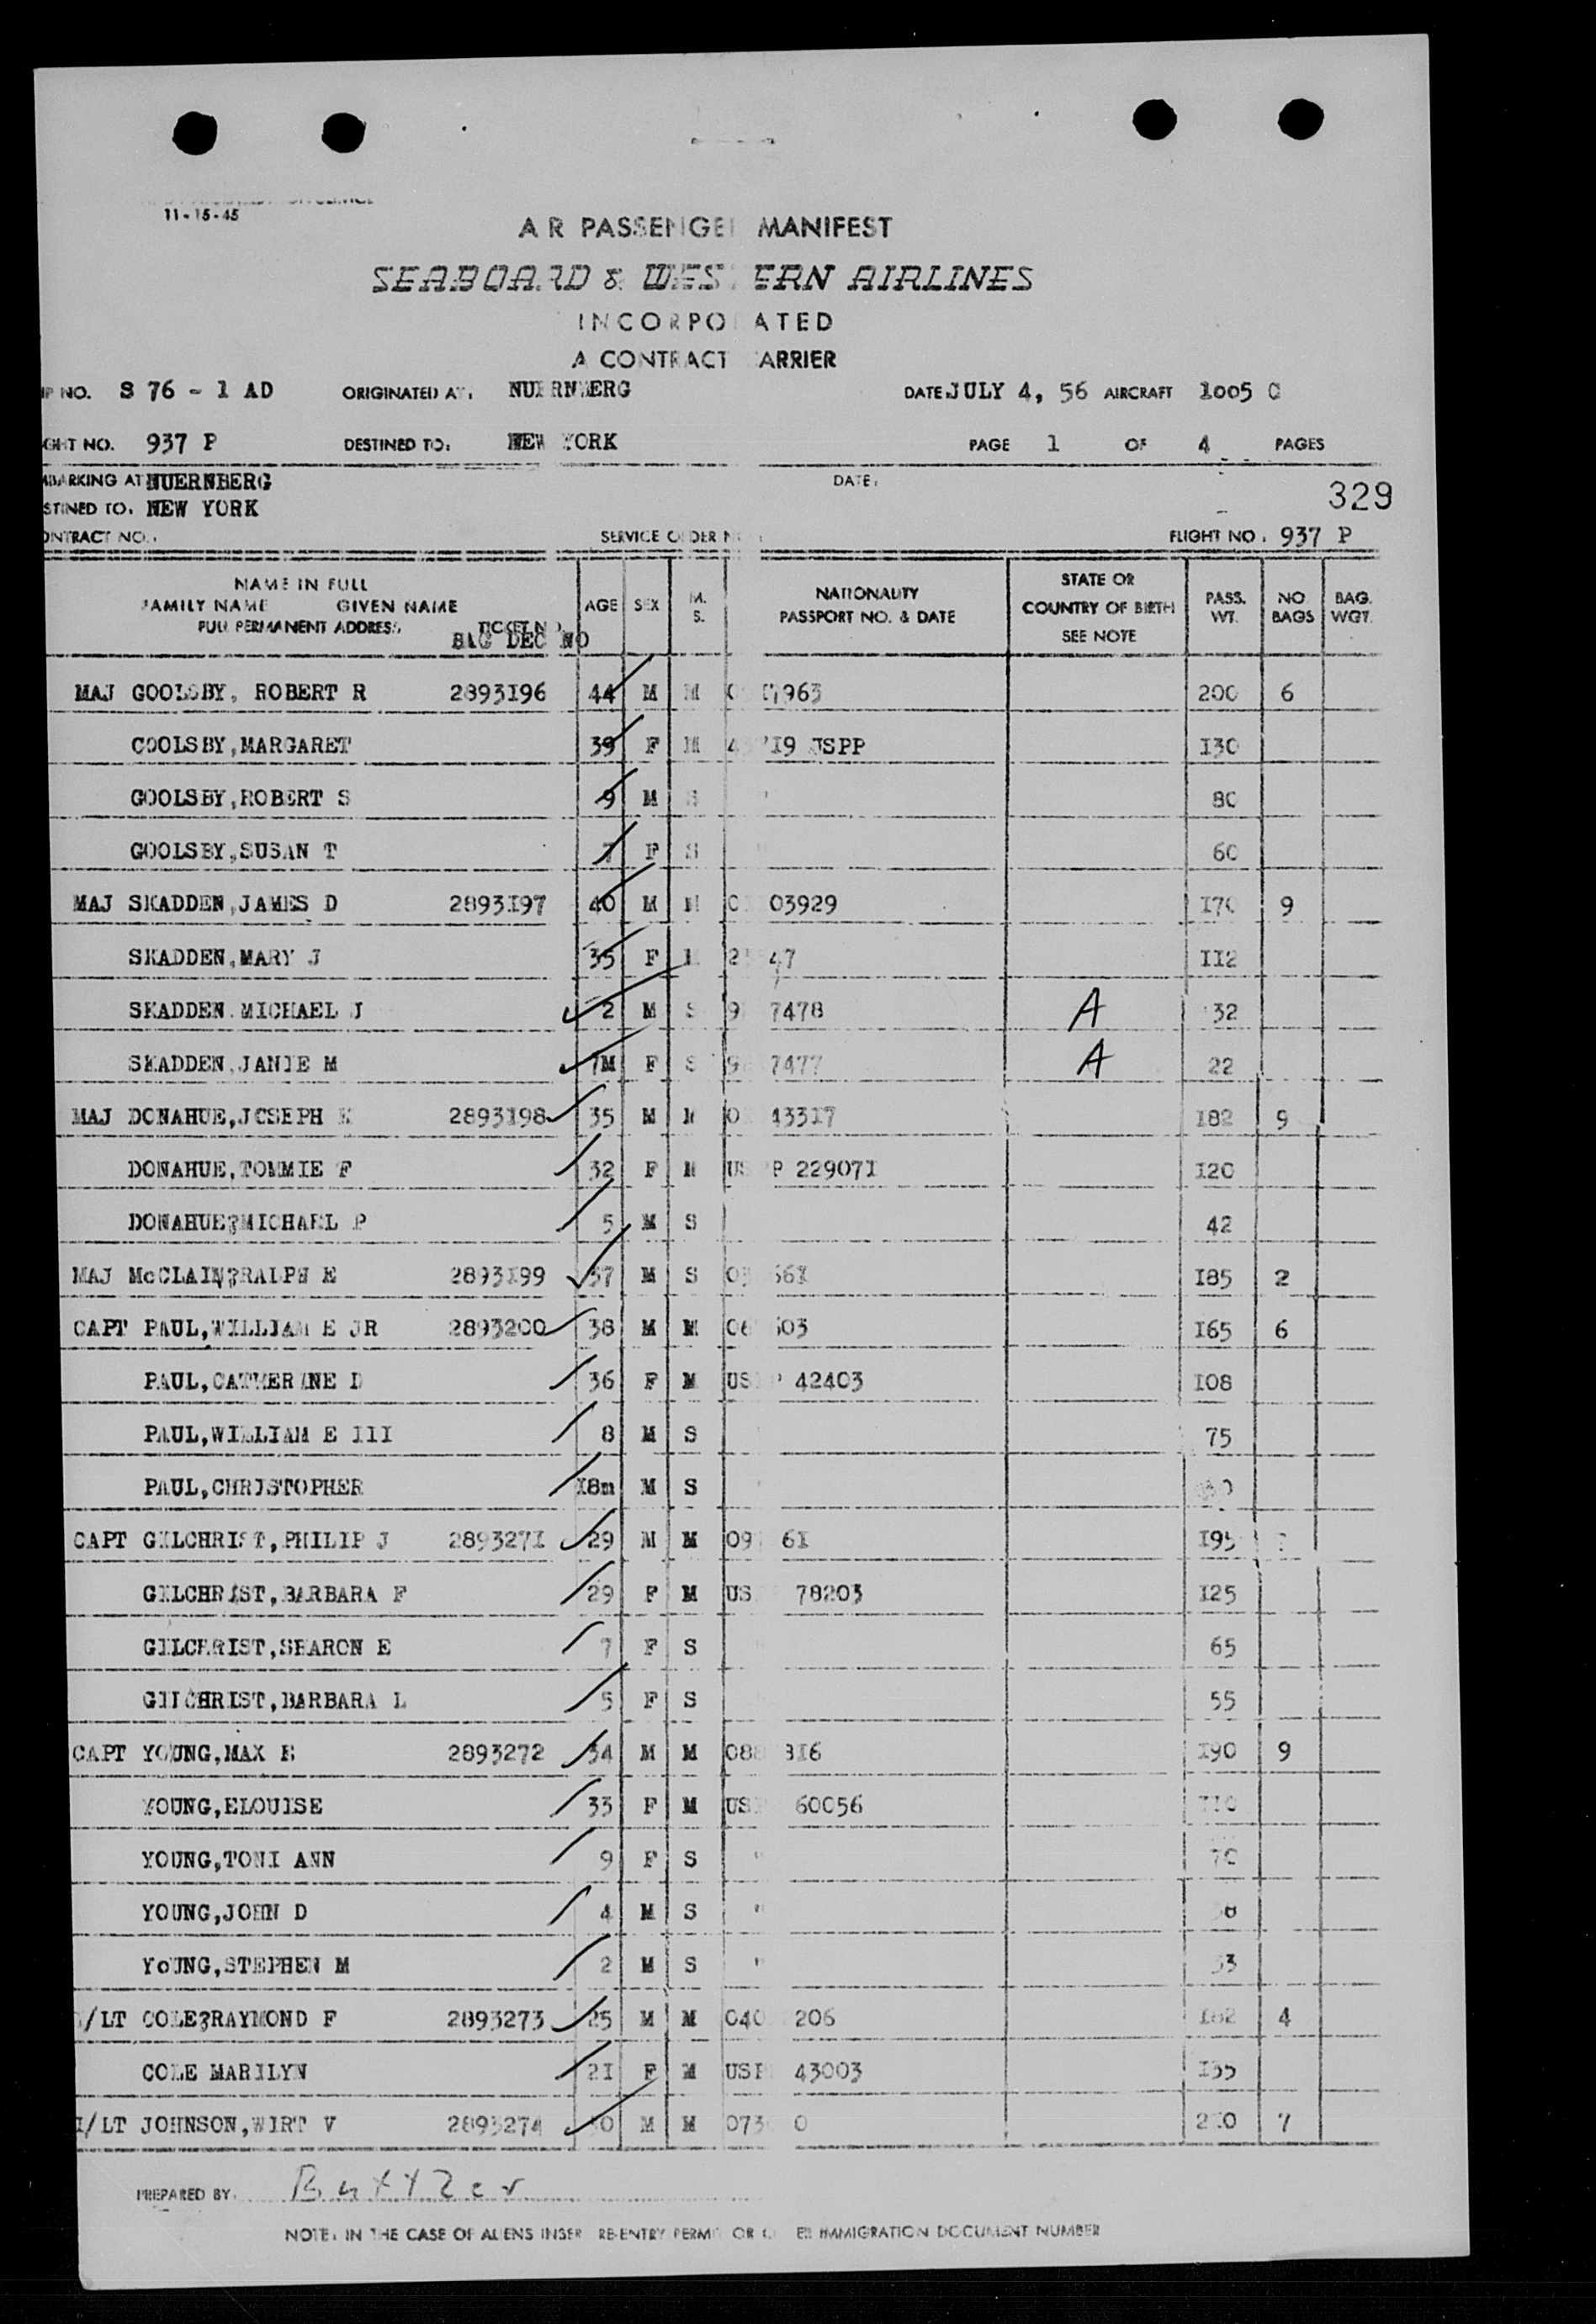 11-15-45
A R PASSENGE MANIFEST
SEABOARD & WES ERN AIRLINES
INCORPO ATED
A CONTRACT ARRIER
IP NO. S 76 - 1 AD ORIGINATED AT: NUERNBERG DATE: JULY 4, 56 AIRCRAFT 1005 C
GHT NO. 937 P DESTINED TO: NEW YORK PAGE 1 OF 4 PAGES
MBARKING AT NUERNBERG DATE:
329
STINED TO: NEW YORK
ONTRACT NO.: SERVICE O DER N FLIGHT NO: 937 P
NAME IN FULL
FAMILY NAME GIVEN NAME
FULL PERMANENT ADDRESS TICKET NO
BAG DEC NO
AGE SEX M. S. NATIONALITY PASSPORT NO. & DATE STATE OR COUNTRY OF BIRTH SEE NOTE PASS. WT. NO BAGS BAG. WGT.
MAJ GOOLSBY, ROBERT R 2893196 44 M M 0 7963 200 6
COOLSBY,MARGARET 39 F M 4 719 USPP 130
GOOLSBY,ROBERT S 9 M S 80
GOOLSBY,SUSAN T 7 F S 60
MAJ SKADDEN,JAMES D 2893197 40 M M 0 03929 170 9
SKADDEN,MARY J 35 F M 2 47 112
SKADDEN MICHAEL J 2 M S 9 7478 A 32
SKADDEN,JANIE M 7M F S 9 7477 A 22
MAJ DONAHUE,JOSEPH 2893198 35 M M 0 43317 182 9
DONAHUE,TOMMIE F 32 F M US P 229071 120
DONAHUE?MICHAEL P 5 M S 42
MAJ McCLAIN?RALPH E 2893199 37 M S 03 561 185 2
CAPT PAUL,WILLIAM E JR 2893200 38 M M 06 503 165 6
PAUL,CATHERINE D 36 F M US P 42403 108
PAUL,WILLIAM E III 8 M S 75
PAUL,CHRISTOPHER 18m M S
CAPT GILCHRIST,PHILIP J 2893271 29 M M 09 61 195
GILCHRIST,BARBARA F 29 F M US 78203 125
GILCHRIST,SHARON E 7 F S 65
GILCHRIST,BARBARA L 5 F S 55
CAPT YOUNG,MAX E 2893272 34 M M 088 816 190 9
YOUNG,ELOUISE 33 F M US 60056 110
YOUNG,TONI ANN 9 F S " 70
YOUNG,JOHN D 4 M S "
YoUNG,STEPHEN M 2 M S " 33
/LT COLE?RAYMOND F 2893273 25 M M 040 206 182 4
COLE MARILYN 21 F M USP 43003 135
1/LT JOHNSON,WIRT V 2893274 30 M M 073 0 210 7
PREPARED BY:
NOTE: IN THE CASE OF ALIENS INSER RE-ENTRY PERM OR O ER IMMIGRATION DOCUMENT NUMBER